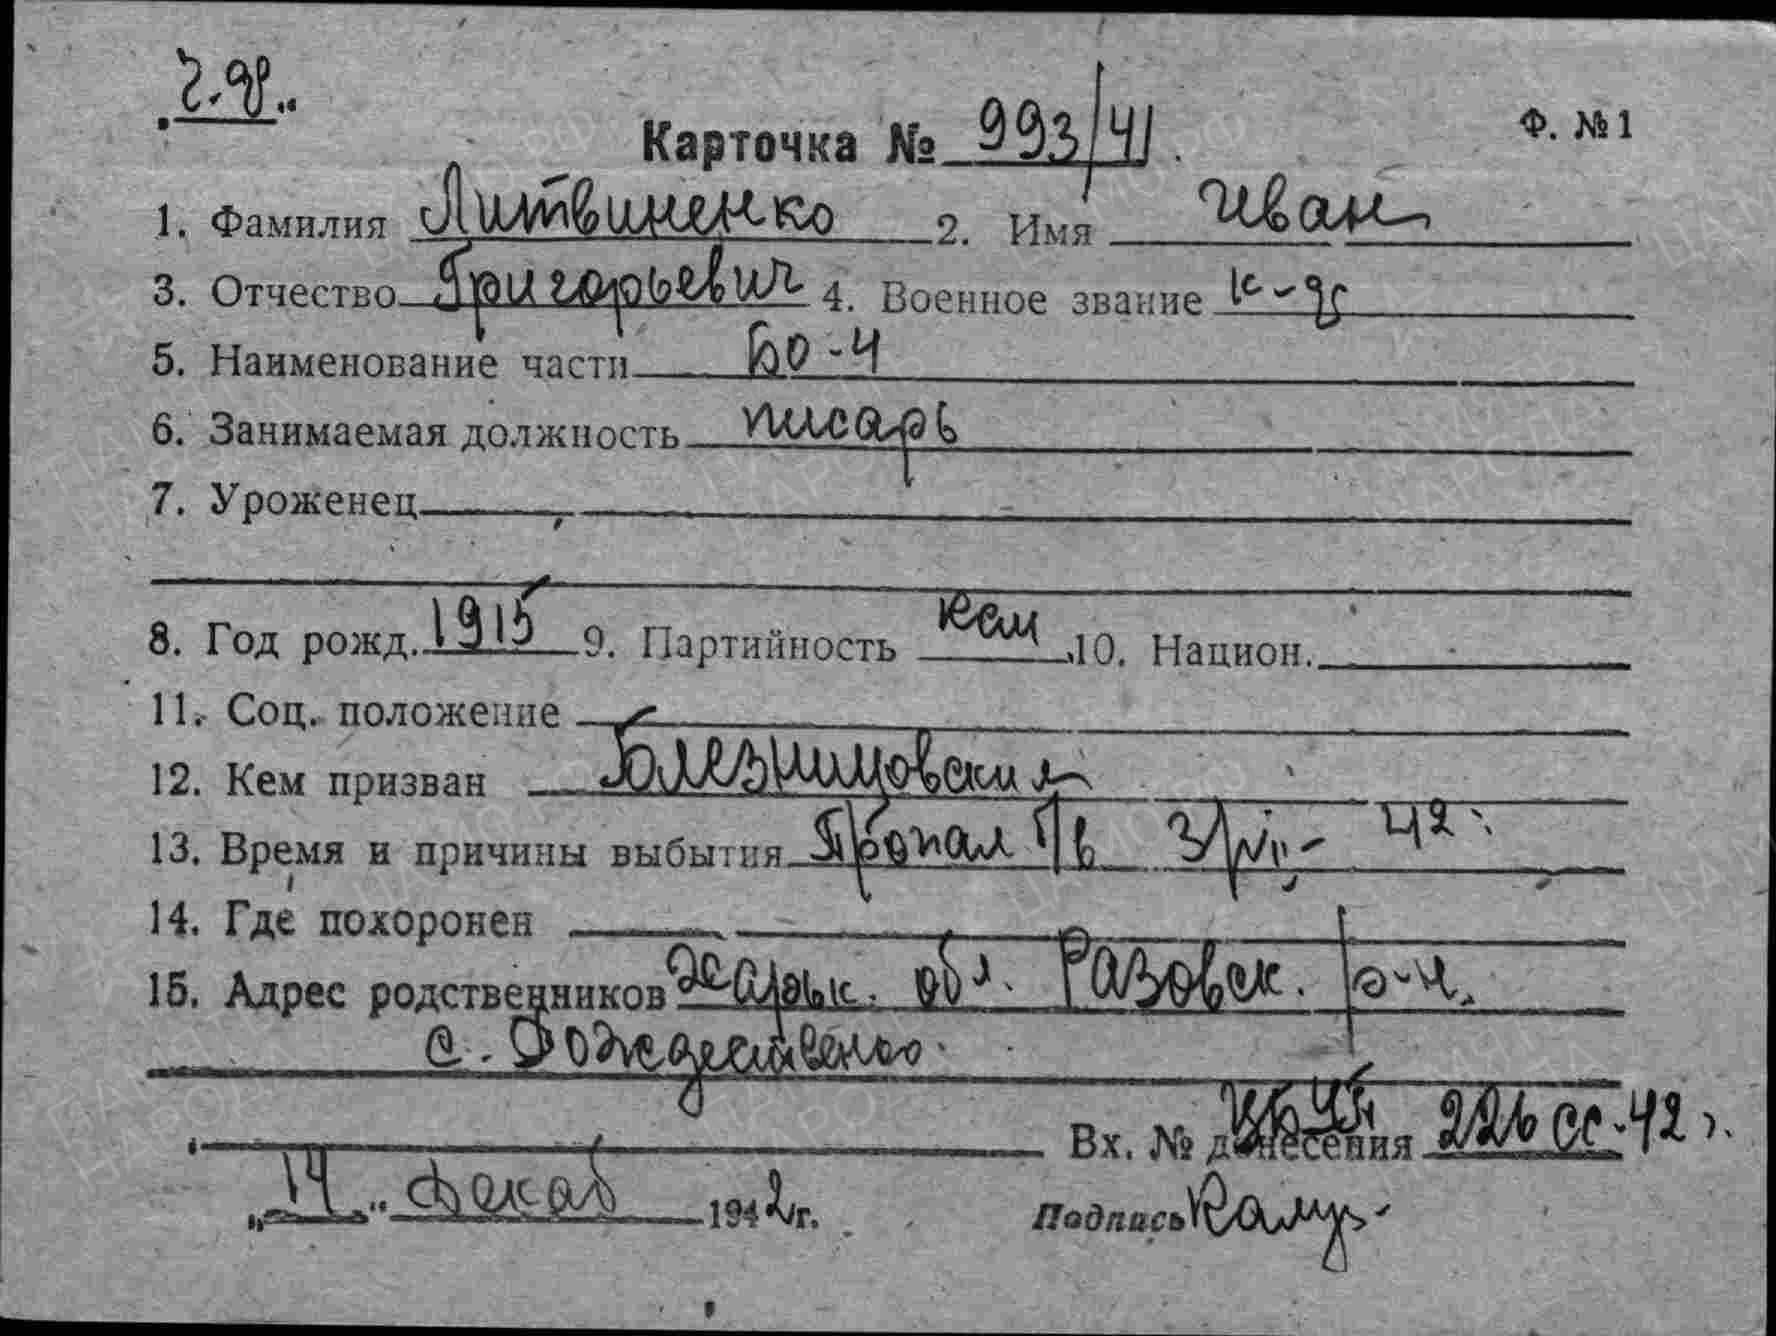 Ч.Ф.
Карточка № 993/41. Ф. №1
1. Фамилия Литвиненко 2. Имя Иван
3. Отчество Григорьевич 4. Военное звание к-ф
5. Наименование части БО-4
6. Занимаемая должность писарь
7. Уроженец
8. Год рожд. 1915 9. Партийность ксм 10. Национ.
11. Соц. положение
12. Кем призван Близнецовским
13. Время и причины выбытия Пропал б/в 3/VII- 42г.
14. Где похоронен
15. Адрес родственников Харьк. обл. Разовск. р-н.
с. Рождествено.
Вх. № донесения 226 сс-42 г.
"14" Декаб 1942г. Подпись
ПАМЯТЬ НАРОДА
ЦАМО РФ